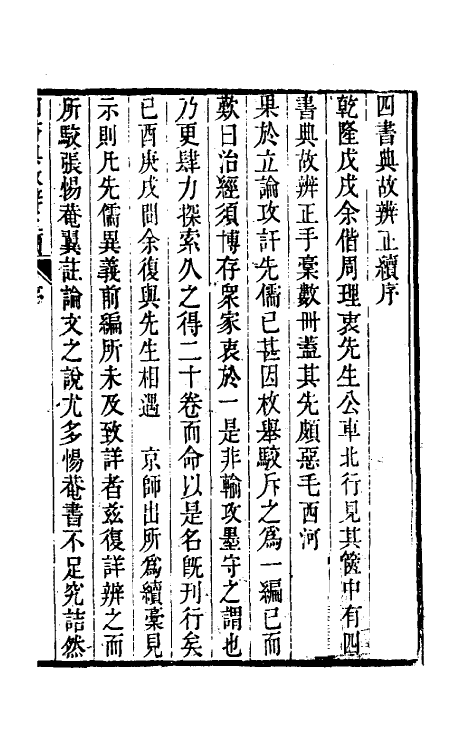 四書典故辨正續序
乾隆戊戌余偕周理衷先生公車北行見其篋中有四
書典故辨正手稾數冊蓋其先頗惡毛西河
果於立論攻訐先儒已甚因枚舉駮斥之爲一編已而
歎曰治經須博存衆家衷於一是非輸攻墨守之謂也
乃更肆力探索久之得二十卷而命以是名旣刊行矣
己酉庚戌間余復與先生相遇　京師出所爲續稾見
示則凡先儒異義前編所未及致詳者兹復詳辨之而
所駮張惕菴翼註論文之說尤多惕菴書不足究詰然